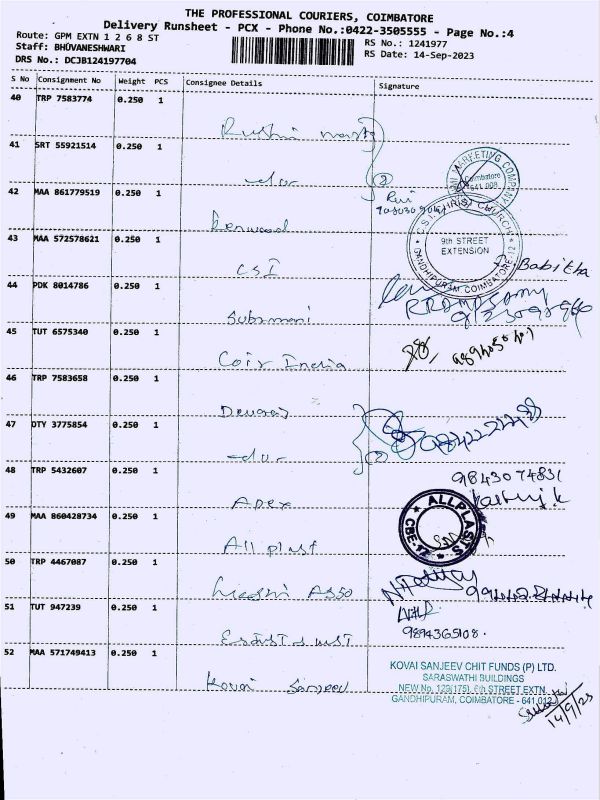 THE PROFESSIONAL COURIERS, COIMBATORE
Delivery Runsheet - PCX - Phone No.:0422-3505555 - Page No.:4
Route: GPM EXTN 1 2 6 8 ST
RS No.: 1241977
Staff: BHUVANESHWARI
RS Date: 14-Sep-2023
DRS No.: DCJB124197704
S No Consignment No Weight PCS Consignee Details Signature
40 TRP 7583774 0.250 1
41 SRT 55921514 0.250 1
MARKETING COMPANY
Coimbatore
641 008
42 MAA 861779519 0.250 1
Kenwood
C.S.I. CHRIST CHURCH
9th STREET
EXTENSION
GANDHIPURAM, COIMBATORE-12
43 MAA 572578621 0.250 1
CSI
Babitha
44 PDK 8014786 0.250 1
Submani
45 TUT 6575340 0.250 1
Coir India
46 TRP 7583658 0.250 1
Devaraj
47 DTY 3775854 0.250 1
48 TRP 5432607 0.250 1
Apex
9843074831
Karthik.k
49 MAA 860428734 0.250 1
All plast
ALLPLASTS
CBE-12
50 TRP 4467087 0.250 1
Asso
51 TUT 947239 0.250 1
9894365108.
52 MAA 571749413 0.250 1
Kovai Sanjeev
KOVAI SANJEEV CHIT FUNDS (P) LTD.
SARASWATHI BUILDINGS
NEW No. 129(175), 6th STREET EXTN.
GANDHIPURAM, COIMBATORE - 641 012
14/9/23